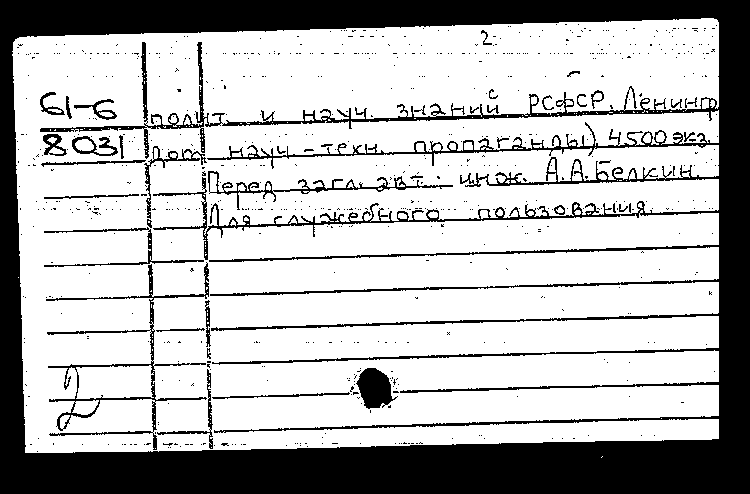 2
61-6
8031
полит. и науч. знаний РСФСР. Ленингр
дом науч-техн. пропаганды) 4500 экз.
Перед загл. авт.: инж. А.А.Белкин.
Для служебного пользования.
2